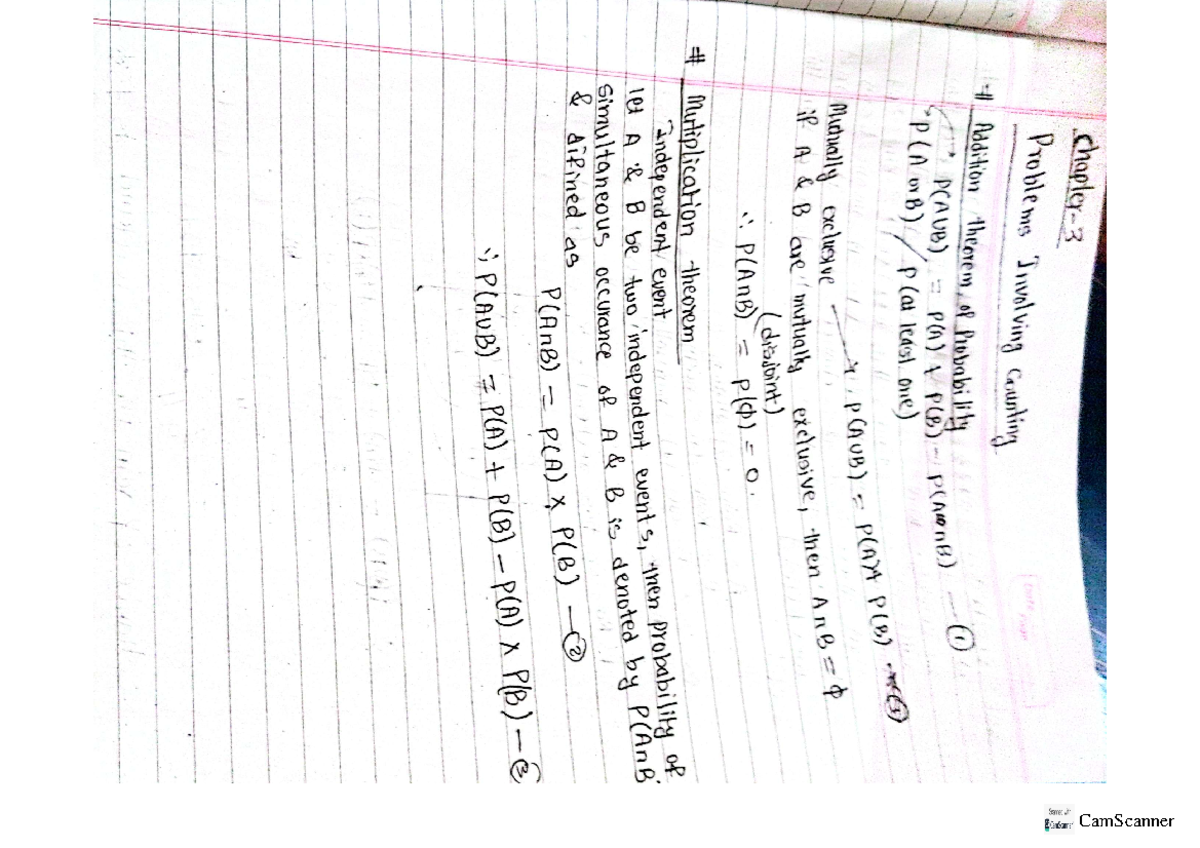 Chapter-3
Problems Involving Counting
# Addition theorem of Probability
P(A∪B) = P(A) + P(B) - P(A∩B) — ①
P(A or B) / P(at least one)
Mutually exclusive → P(A∪B) = P(A)+ P(B)
if A & B are mutually exclusive, then A∩B = ϕ
(disjoint)
∴ P(A∩B) = P(ϕ) = 0.
# Mutiplication theorem
Independent event
let A & B be two independent events, then probability of
simultaneous occurance of A & B is denoted by P(A∩B
& difined as
P(A∩B) = P(A) × P(B) — ②
∴ P(A∪B) = P(A) + P(B) - P(A) × P(B) — ③
CamScanner